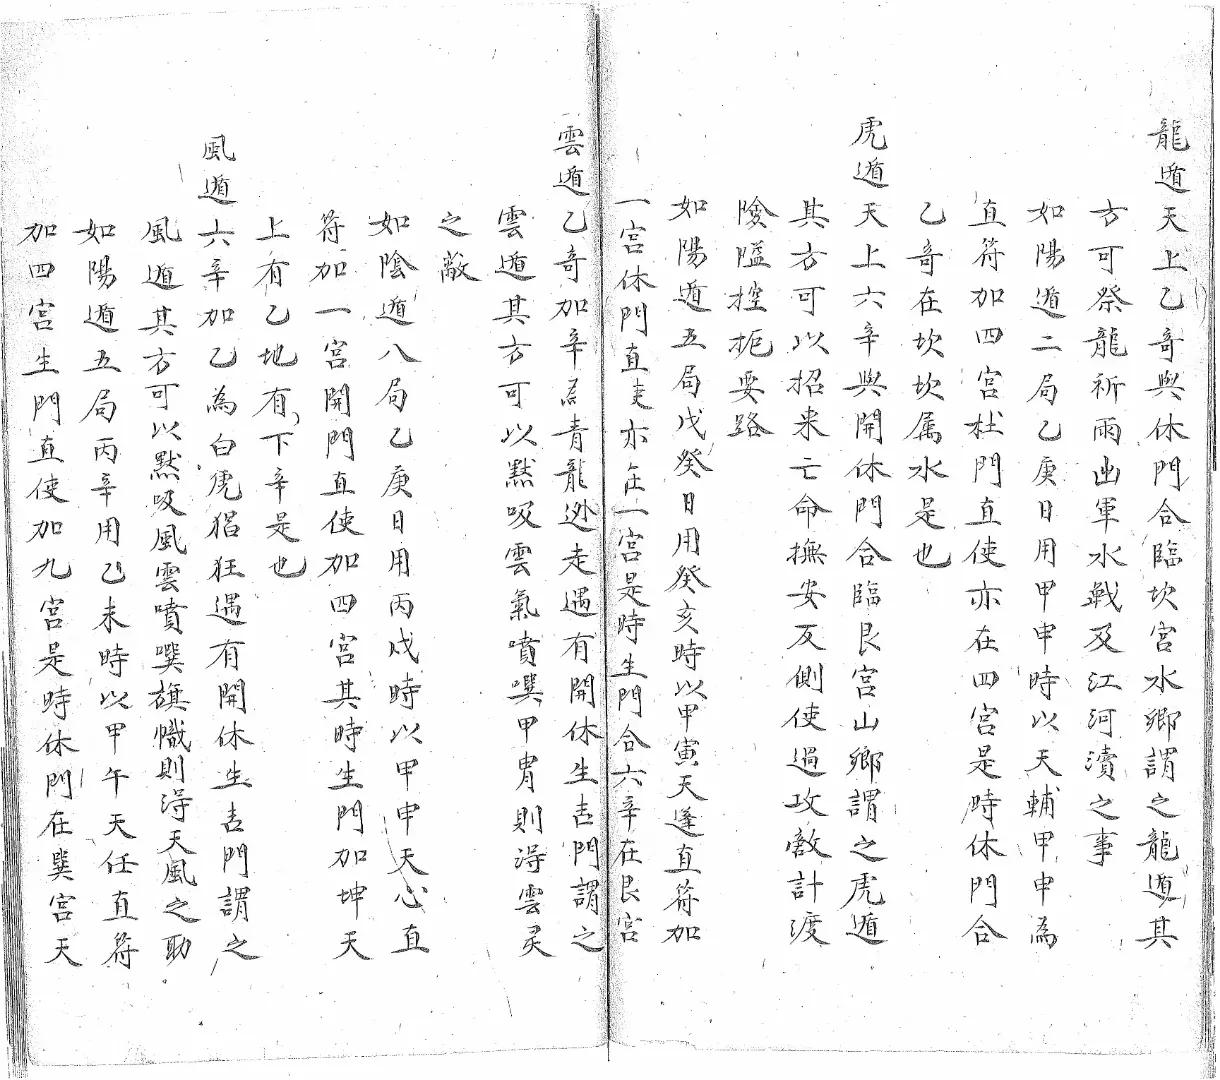 龍遁天上乙奇與休門合臨坎宮水鄉謂之龍遁其
方可祭龍祈雨出軍水戰及江河瀆之事
如陽遁二局乙庚日用甲申時以天輔甲申為
直符加四宮杜門直使亦在四宮是時休門合
乙奇在坎坎属水是也
虎遁天上六辛與開休門合臨艮宮山鄉謂之虎遁
其方可以招来亡命撫安反側使過攻敵計渡
險隘控扼要路
如陽遁五局戊癸日用癸亥時以甲寅天逢直符加
一宮休門直使亦在一宮是時生門合六辛在艮宮
雲遁乙奇加辛為青龍逃走遇有開休生吉門謂之
雲遁其方可以黙吸雲氣噴噀甲冑則得雲灵
之敵
如陰遁八局乙庚日用丙戌時以甲申天心直
符加一宮開門直使加四宮其時生門加坤天
上有乙地有下辛是也
風遁六辛加乙為白虎猖狂遇有開休生吉門謂之
風遁其方可以黙吸風雲噴噀旗幟則得天風之助
如陽遁五局丙辛用乙未時以甲午天任直符
加四宮生門直使加九宮是時休門在巽宮天